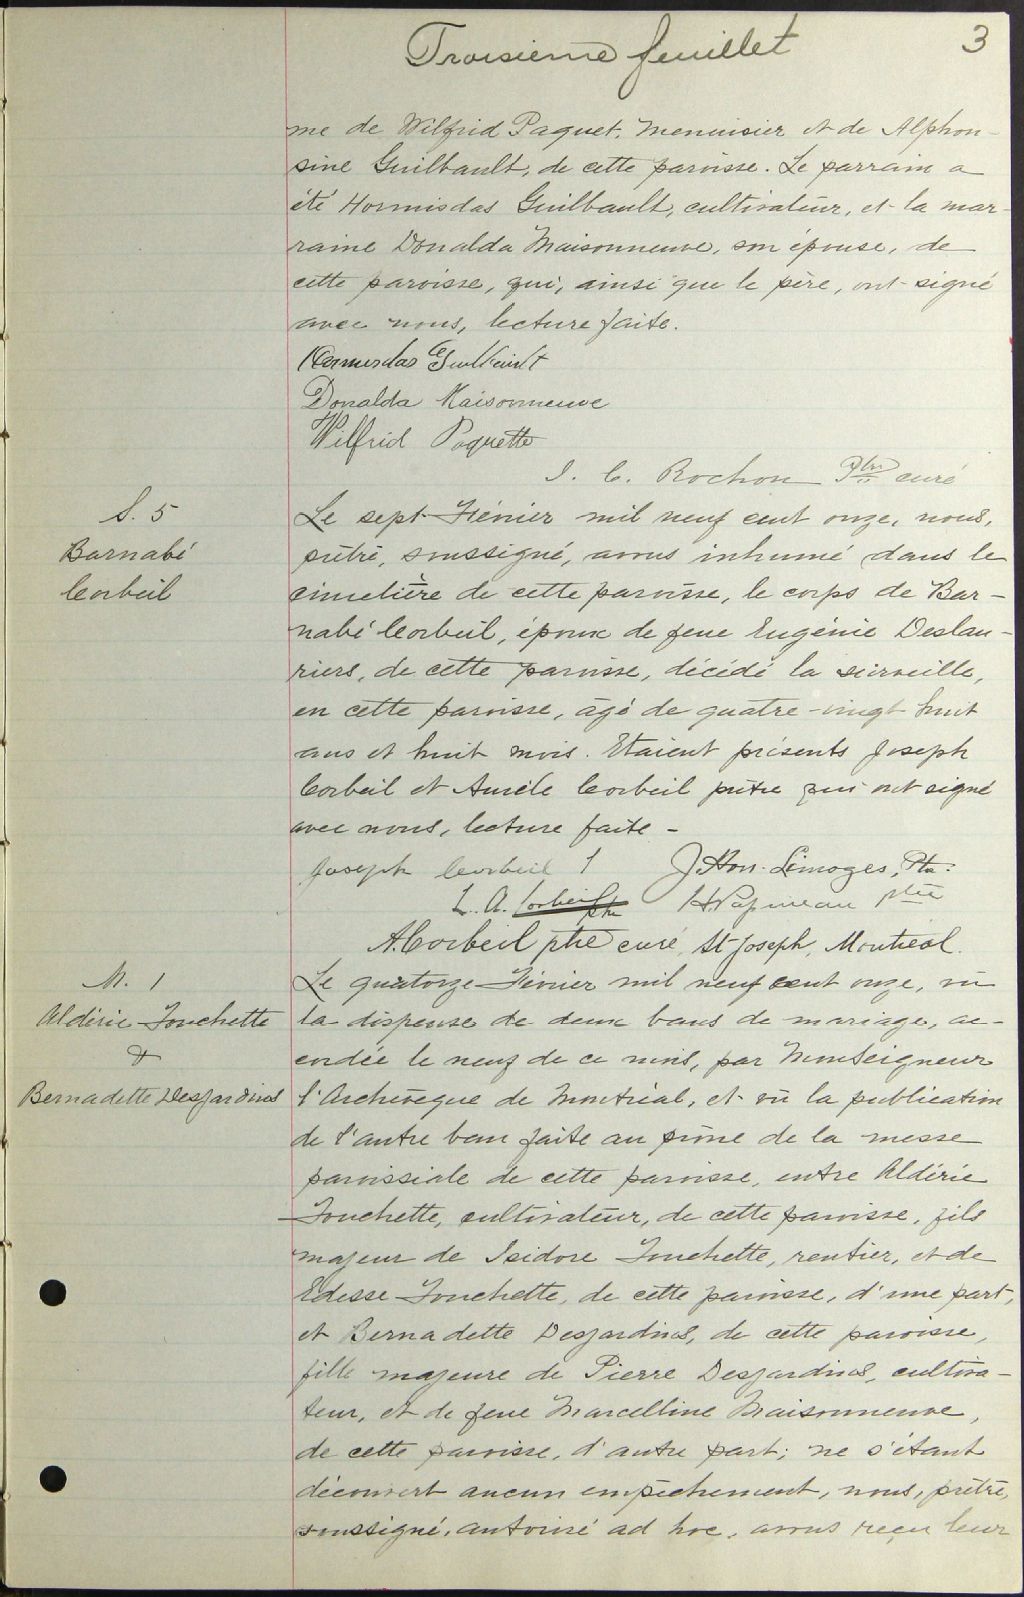 Troisième feuillet
3
me de Wilfrid Paquet, menuisier et de Alphon-
sine Guilbault, de cette paroisse. Le parrain a
été Hormisdas Guilbault, cultivateur, et la mar-
raine Donalda Maisonneuve, son épouse, de
cette paroisse, qui, ainsi que le père, ont signé
avec nous, lecture faite.
Hormisdas Guilbault
Donalda Maisonneuve
Wilfrid Paquette
J. C. Rochon Ptre curé
S. 5
Barnabé
Corbeil
Le sept Février mil neuf cent onze, nous,
prêtre, soussigné, avons inhumé dans le
cimetière de cette paroisse, le corps de Bar-
nabé Corbeil, époux de feue Eugénie Deslau-
riers, de cette paroisse, décédé la surveille,
en cette paroisse, âgé de quatre-vingt huit
ans et huit mois. Etaient présents Joseph
Corbeil et Aurèle Corbeil prêtre qui ont signé
avec nous, lecture faite -
Joseph Corbeil J. Hon. Limoges, Ptr.
L. A. Corbeil ptre H. Papineau ptre
A. Corbeil ptre curé, St-Joseph, Montréal.
M. 1
Aldéric Touchette
&
Bernadette Desjardins
Le quatorze Février mil neuf cent onze, vu
la dispense de deux bans de mariage, ac-
cordée le neuf de ce mois, par Monseigneur
l'Archevêque de Montréal, et vû la publication
de l'autre ban faite au prône de la messe
paroissiale de cette paroisse, entre Aldéric
Touchette, cultivateur, de cette paroisse, fils
majeur de Isidore Touchette, rentier, et de
Edesse Touchette, de cette paroisse, d'une part,
et Bernadette Desjardins, de cette paroisse,
fille majeure de Pierre Desjardins, cultiva-
teur, et de feue Marcelline Maisonneuve,
de cette paroisse, d'autre part; ne s'étant
découvert aucun empêchement, nous, prêtre,
soussigné, autorisé ad hoc, avons reçu leur